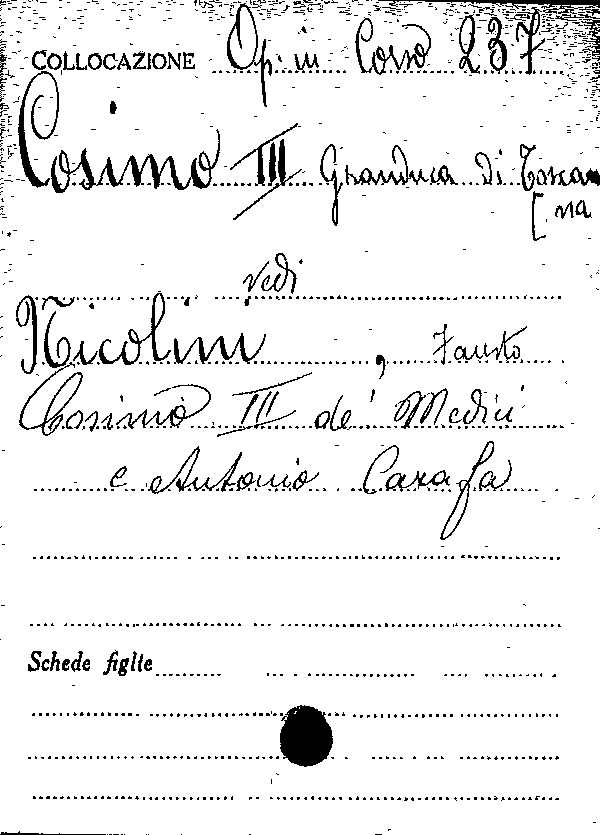 COLLOCAZIONE Op. in Corso 237
Cosimo III Granduca di Toscan
[na
vedi
Nicolini, Fausto
Cosimo III de' Medici
e Antonio Carafa
Schede figlie